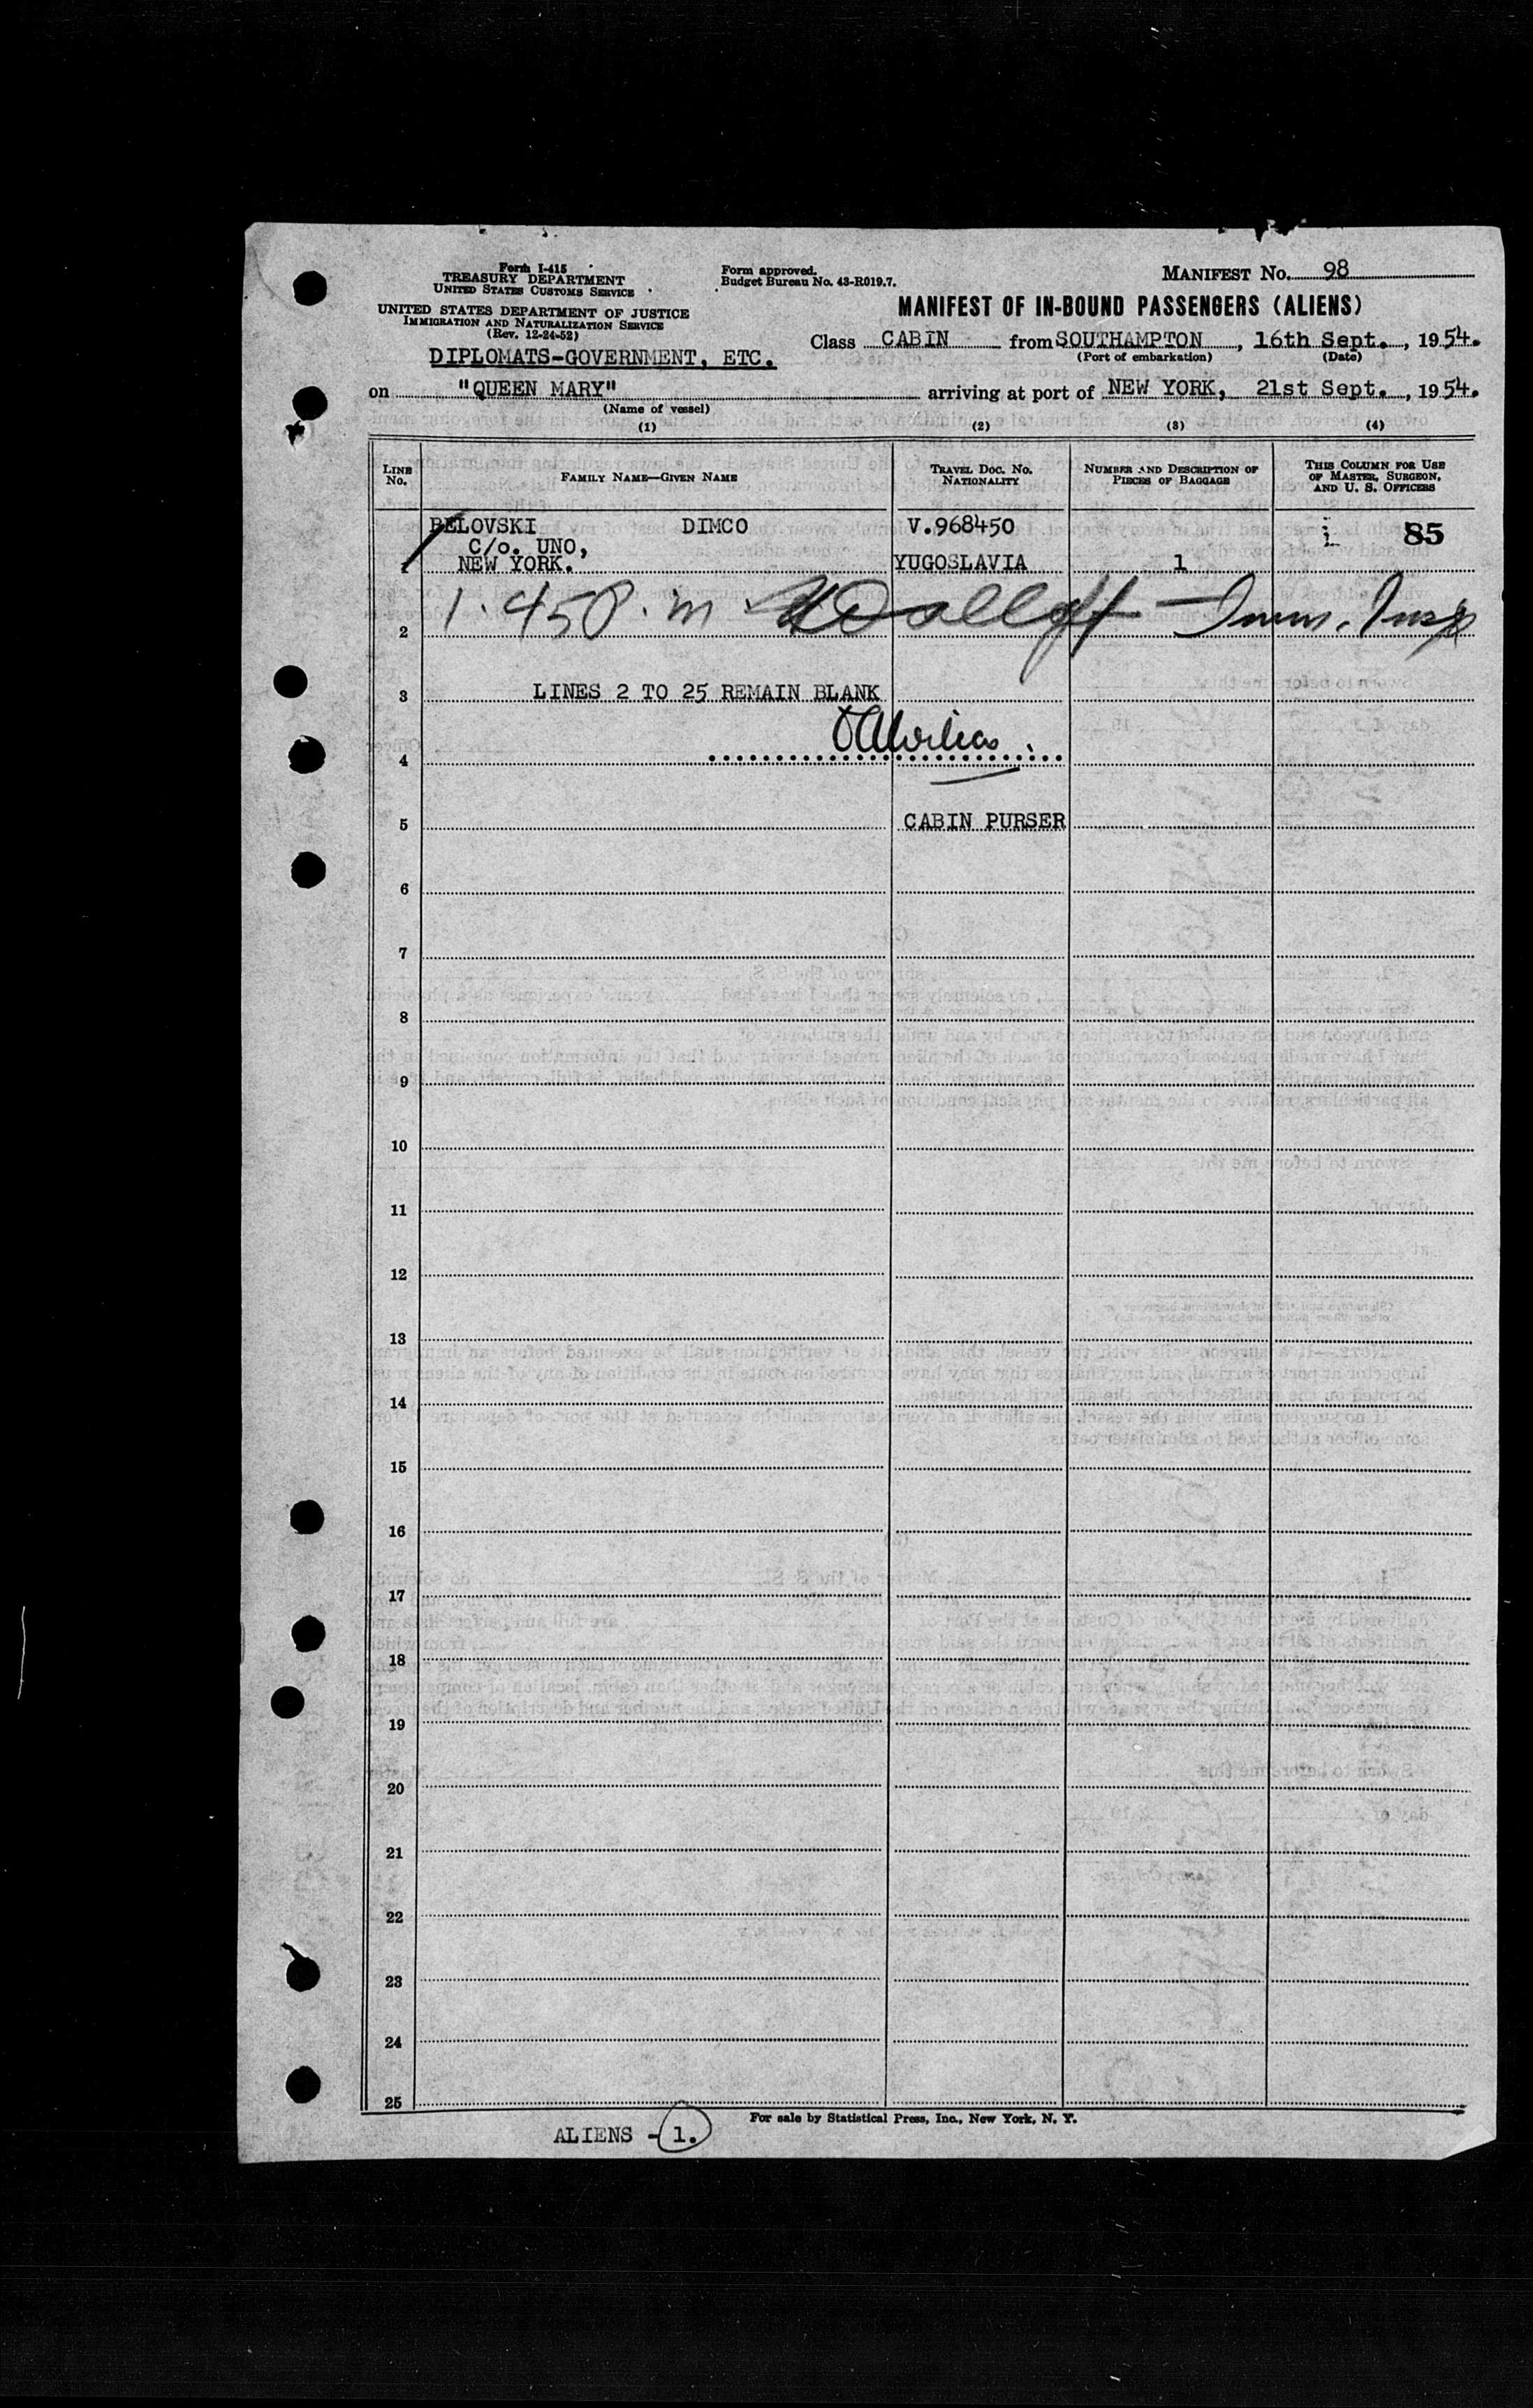 Form I-415
TREASURY DEPARTMENT
UNITED STATES CUSTOMS SERVICE
UNITED STATES DEPARTMENT OF JUSTICE
IMMIGRATION AND NATURALIZATION SERVICE
(Rev. 12-24-52)
DIPLOMATS-GOVERNMENT, ETC.
Form approved.
Budget Bureau No. 43-R019.7.
MANIFEST NO. 98
MANIFEST OF IN-BOUND PASSENGERS (ALIENS)
Class CABIN from SOUTHAMPTON, 16th Sept., 1954.
(Port of embarkation) (Date)
on "QUEEN MARY" arriving at port of NEW YORK, 21st Sept., 1954.
(Name of vessel)
(1) (2) (3) (4)
LINE NO. FAMILY NAME—GIVEN NAME TRAVEL DOC. NO. NATIONALITY NUMBER AND DESCRIPTION OF PIECES OF BAGGAGE THIS COLUMN FOR USE OF MASTER, SURGEON, AND U. S. OFFICERS
BELOVSKI DIMCO V.968450 85
C/o. UNO,
1 NEW YORK. YUGOSLAVIA 1
2
3 LINES 2 TO 25 REMAIN BLANK
4
5 CABIN PURSER
6
7
8
9
10
11
12
13
14
15
16
17
18
19
20
21
22
23
24
25
For sale by Statistical Press, Inc., New York, N. Y.
ALIENS - 1.